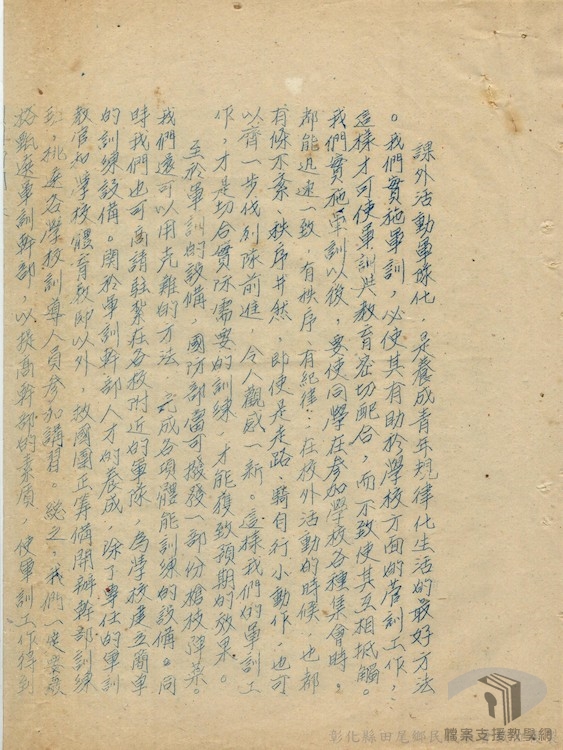 課外活動軍隊化，是養成青年規律化生活的最好方法
。我們實施軍訓，必使其有助於學校方面的管訓工作，
這樣才可使軍訓與教育密切配合，而不致使其互相抵觸。
我們實施軍訓以後，要使同學在參加學校各種集會時，
都能迅速一致，有秩序、有紀律：在校外活動的時候，也都
有條不紊、秩序井然，即使是走路、騎自行小動作，也可
以齊一步伐列隊前進，令人觀感一新。這樣我們的軍訓工
作，才是切合實際需要的訓練，才能獲致預期的效果。
至於軍訓的設備，國防部當可撥發一部份槍枝彈葯。
我們還可以用克難的方法，完成各項體能訓練的設備。同
時我們也可商請駐紮在各校附近的軍隊，為學校建立簡單
的訓練設備。関於軍訓幹部人才的養成，除了專任的軍訓
教官和學校體育教師以外，救國團正籌備開辦幹部訓練
班，挑選各學校訓導人員參加講習。總之，我們一定要嚴
格甄選軍訓幹部，以提高幹部的素質，使軍訓工作得到
檔案支援教學網
彰化縣田尾鄉民